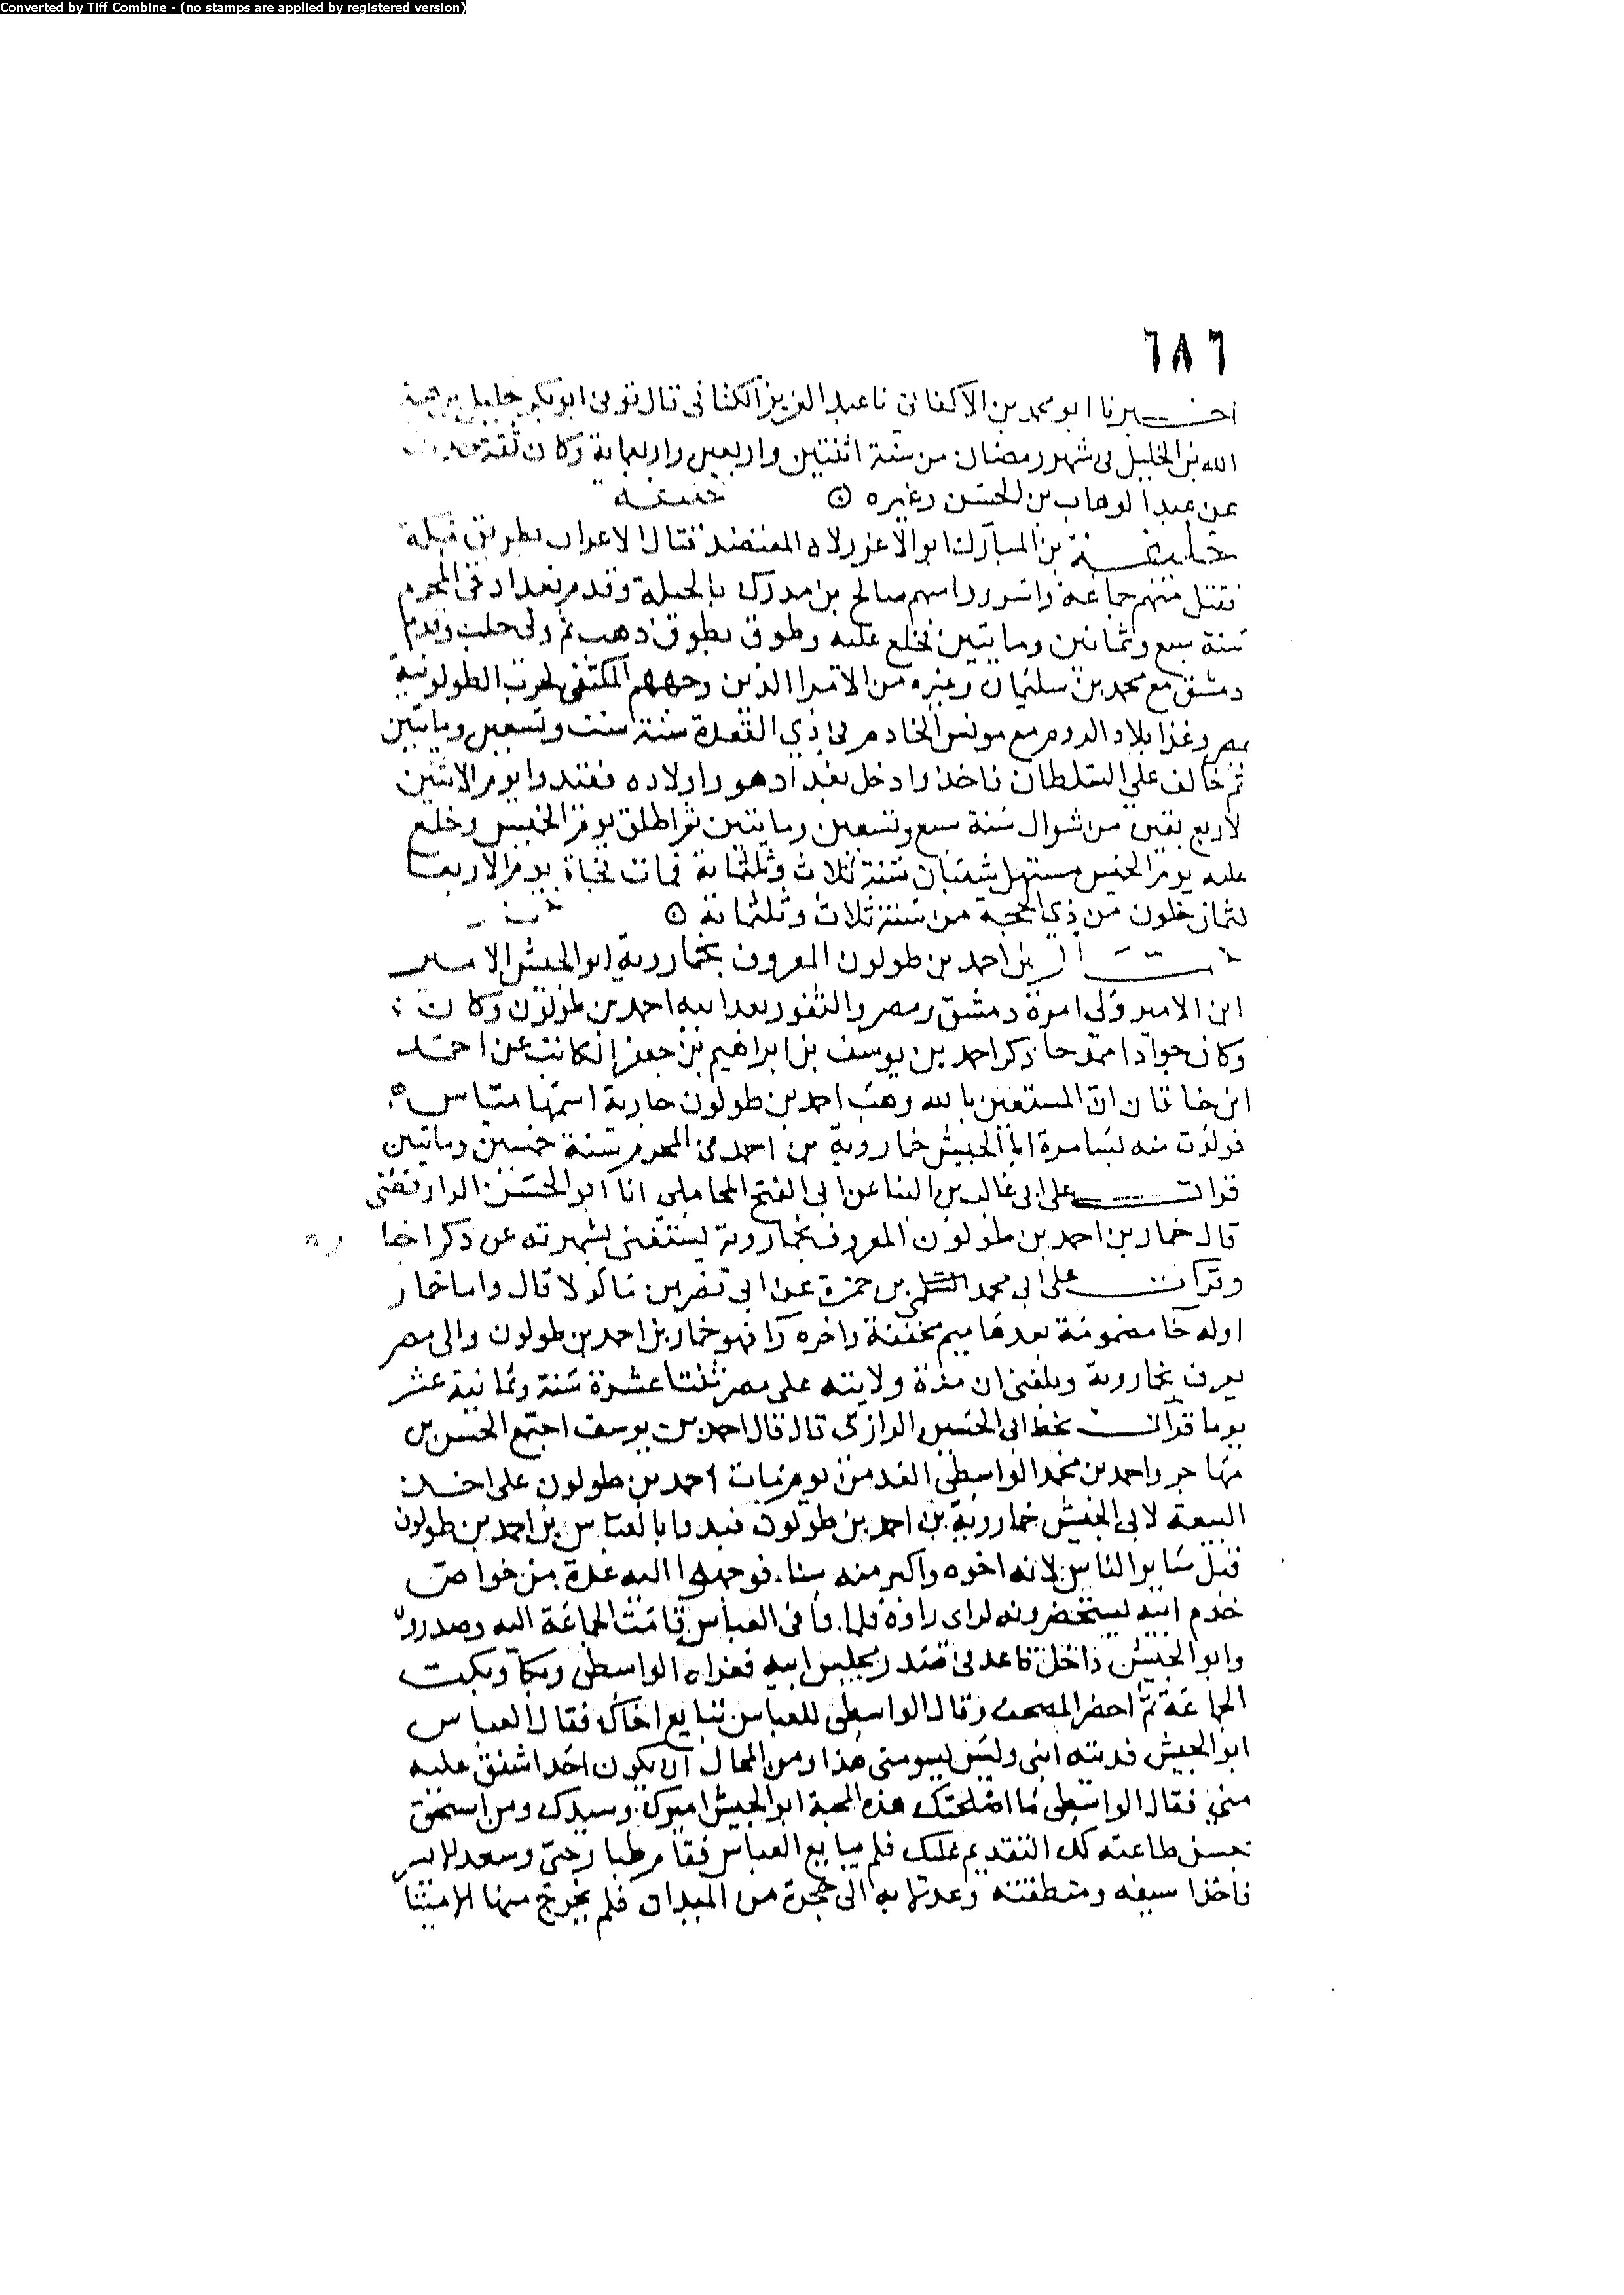 Converted by Tiff Combine - (no stamps are applied by registered version)
٦٨٦
اخبرنا ابو محمد بن الاكفاني نا عبد العزيز الكتاني قال توفي ابو بكر خليل بن هبة
الله بن الخليل في شهر رمضان من سنة اثنتين واربعين واربعماية وكان ثقة
عن عبد الوهاب بن الحسن وغيره
خليفة بن المبارك ابو الاغر ولاه المعتضد قتال الاعراب بطريق مكة
فقتل منهم جماعة واسر راسهم صالح بن مدرك بالحيلة وقدم بغداد في المحرم
سنة سبع وثمانين ومايتين فخلع عليه وطوق بطوق ذهب ثم ولي حلب وقدم
دمشق مع محمد بن سليمان وغيره من الامرا الذين وجههم المكتفي لحرب الطولونية
بمصر وغزا بلاد الروم مع مونس الخادم في ذي القعدة سنة ست وتسعين ومايتين
ثم خالف علي السلطان فاخذ وادخل بغداد هو واولاده فقيدوا يوم الاثنين
لاربع بقين من شوال سنة سبع وتسعين ومايتين ثم اطلق يوم الخميس وخلع
عليه يوم الخميس مستهل شعبان سنة ثلاث وثلثماية فمات فجاة يوم الاربعا
لثمان خلون من ذي الحجة من سنة ثلاث وثلثماية
خمار بن احمد بن طولون المعروف بخمارويه ابو الجيش الامير
ابن الامير ولي امرة دمشق ومصر والثغور بعد ابيه احمد بن طولون وكان
وكان جوادا ممدحا ذكر احمد بن يوسف بن ابراهيم بن جعفر الكاتب عن احمد
ابن خاقان ان المستعين بالله وهب احمد بن طولون جارية اسمها مياس
فولدت منه بسامرة ابا الجيش خمارويه بن احمد في المحرم سنة خمسين ومايتين
قرات على ابي غالب بن البنا عن ابي الفتح المحاملي انا ابو الحسن الدارقطني
قال خمار بن احمد بن طولون المعروف بخمارويه يستغنى بشهرته عن ذكر اخباره
وقرات على ابي محمد السلمي بن حمزة عن ابي نصر بن ماكولا قال واما خمار
اوله خا مضمومة بعدها ميم مخففة واخره را فهو خمار بن احمد بن طولون والي مصر
يعرف بخمارويه وبلغني ان مدة ولايته على مصر ثنتا عشرة سنة وثمانية عشر
يوما قرات بخط ابي الحسين الرازي قال قال احمد بن يوسف اجتمع الحسن بن
مهاجر واحمد بن محمد الواسطي الغد من يوم مات احمد بن طولون على اخذ
البيعة لابي الجيش خمارويه بن احمد بن طولون فبدوا بالعباس بن احمد بن طولون
قبل ساير الناس لانه اخوه واكبر منه سنا فوجهوا اليه عدة من خواص
خدم ابيه ليستحضرونه لراي راوه فلما وافى العباس قامت الجماعة اليه وصدروه
وابو الجيش داخل قاعد في صدر مجلس ابيه فعزاه الواسطي وبكا وبكت
الجماعة ثم احضر المصحف وقال الواسطي للعباس تبايع اخاك فقال العباس
ابو الجيش فديته ابني وليس يسومني هذا ومن المحال ان يكون احد اشفق عليه
مني فقال الواسطي ما اصلحتك هذه المحبة ابو الجيش اميرك وسيدك ومن استحق
بحسن طاعته لك التقديم عليك فلم يبايع العباس فقام طبارجي وسعد الايسر
فاخذا سيفه ومنطقته وعدلا به الى حجرة من الميدان فلم يخرج منها الا ميتا